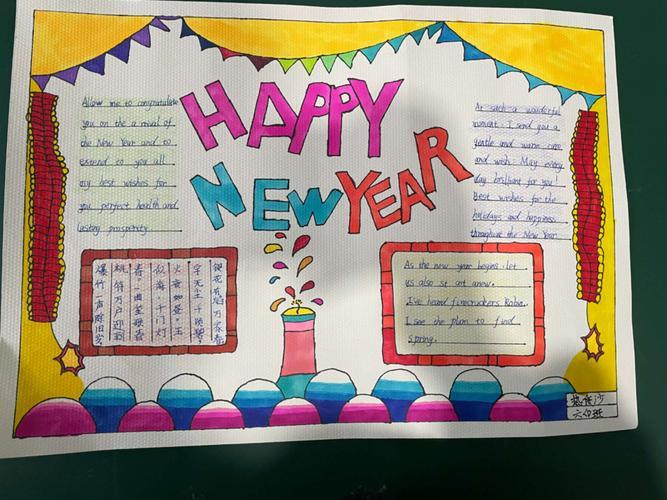 HAPPY
NEW YEAR
Allow me to congratulate
you on the a rival of
the New Year and to
extend to you all
my best wishes for
you perfect health and
lasting prosperity
At such a wonderful
moment. I send you a
gentle and warm care
and wish. May every
day brilliant for you!
Best wishes for the
holidays and happiness
throughout the New Year
爆竹一声除旧岁
桃符万户迎新
春·一曲笙歌春
似海·千门灯
火夜如昼·玉
宇无尘千顷碧
银花有焰万家春
As the new year begins. let
us also st art anew.
I've heard firecruckers Robin.
I see the plum to find
spring.
六 班